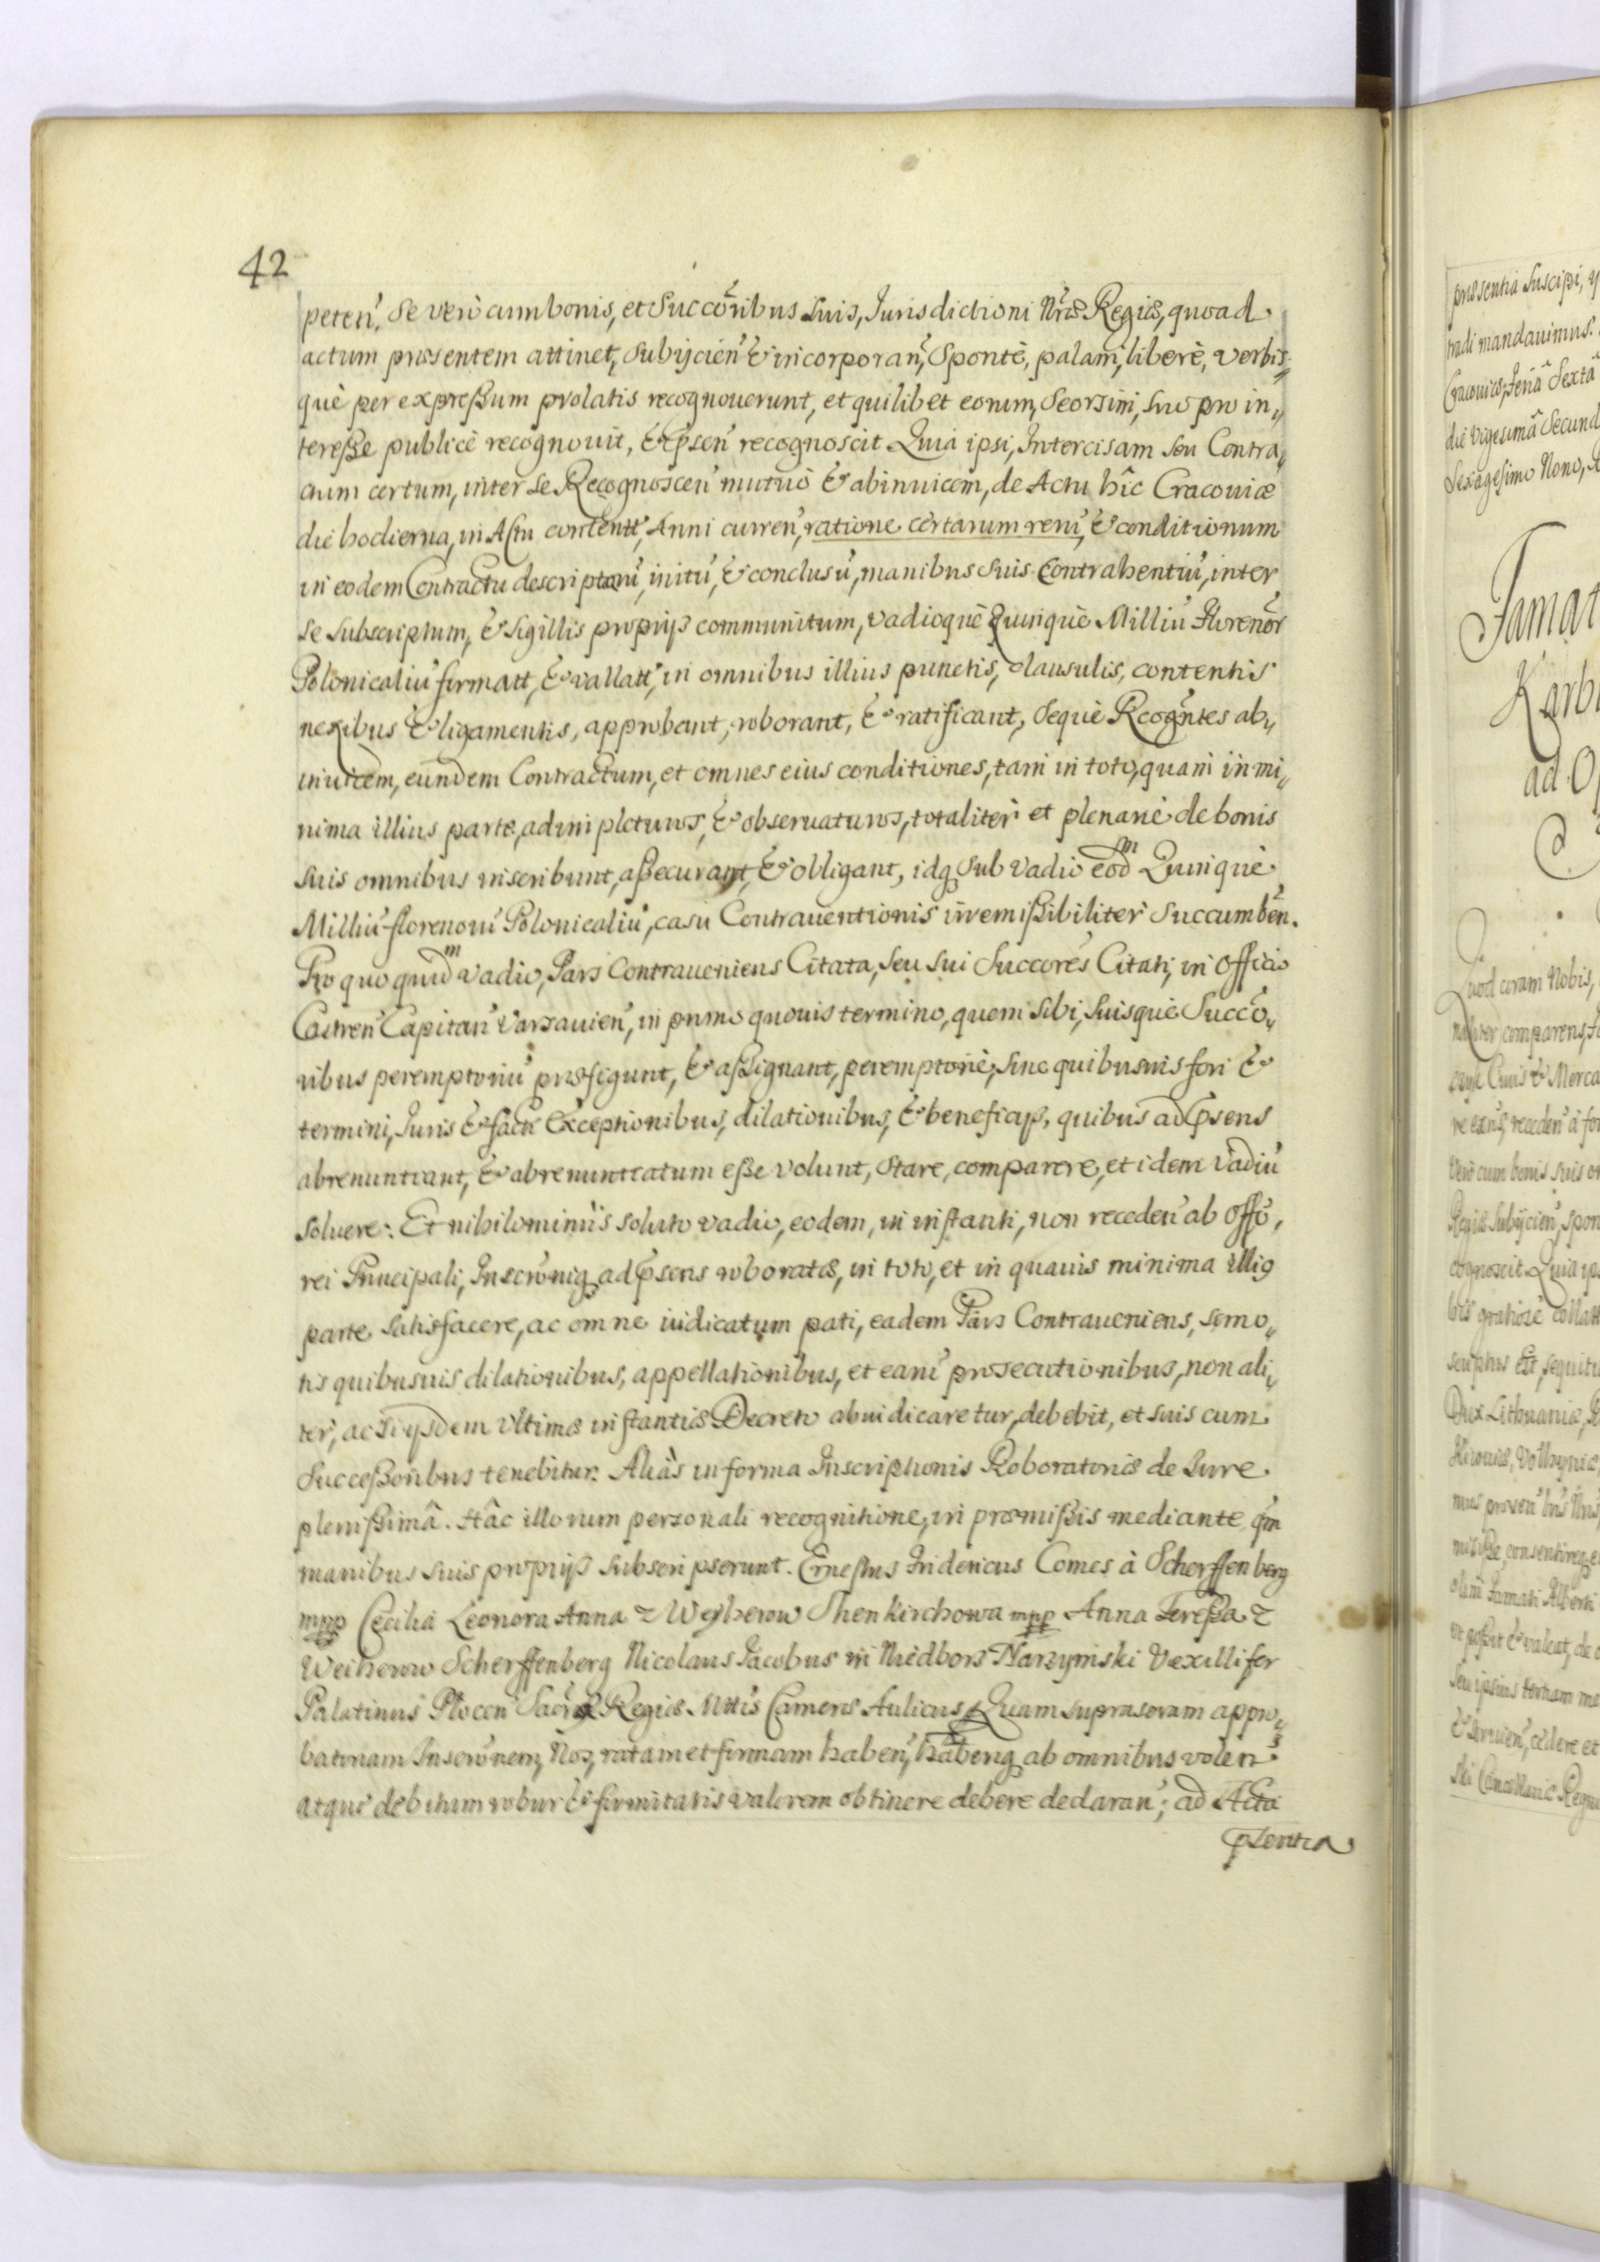 42
peten, Se verò cum bonis, et Succoribus Suis, Jurisdictioni Nrae Regiae, quoad
actum praesentem attinet, Subijcien & incorporan, Sponte, palam, liberè, verbis-
què per expreßum prolatis recognoverunt, et quilibet eorum, Seorsim, suo pro in„
tereße publicè recognovit, & pſen recognoscit Quia ipsi, Intercisam seu Contra„
ctum certum, inter se Recognoscen mutuò & abinvicem, de Actu hîc Cracoviae
die hodierna, in Actu content, Anni curren, ratione certarum reru, & conditionum
in eodem Contractu descriptaru, initu, & conclusu, manibus suis Contrahentiu, inter
se subscriptum, & sigillis proprijs communitum, vadioquè Quinquè Milliu Florenor
Polonicaliu firmatt, & vallatt, in omnibus illius punctis, clausulis, contentis
nexibus & ligamentis, approbant, roborant, & ratificant, Sequè Recogntes ab„
invicem, eundem Contractum, et omnes eius conditiones, tam in toto, quam in mi„
nima illius parte, adimpleturos, & observaturos, totaliter et plenariè de bonis
suis omnibus inscribunt, aßecurant, & obligant, idq sub vadio eodm Quinquè
Milliu florenoru Polonicaliu, casu Contraventionis irremißibiliter Succumben.
Pro quo quidm vadio, Pars Contraveniens Citata, seu sui Succores Citati, in Officio
Castren Capitan Varsavien, in primo quovis termino, quem sibi, suisquè Succo„
ribus peremptoriu praefigunt, & aßignant, peremptoriè, sine quibusvis fori &
termini, Juris & facti Exceptionibus, dilationibus, & beneficijs, quibus ad pſens
abrenuntiant, & abrenuntiatum eße volunt, stare, comparere, et idem vadiu
soluere: Et nihilominùs soluto vadio, eodem, in instanti, non receden ab Offo,
rei Principali, Inscronig ad pſens roboratae, in toto, et in quavis minima illig
parte satisfacere, ac omne iudicatum pati, eadem Pars Contraveniens, semo„
tis quibusvis dilationibus, appellationibus, et earu prosecutionibus, non ali„
ter, ac si ijsdem Vltimae instantiae Decreto abiudicaretur, debebit, et suis cum
Succeßoribus tenebitur. Aliàs in forma Inscriptionis Roboratoriae de Iure
plenißimâ. Hâc illorum personali recognitione, in praemißis mediante qm
manibus suis proprijs subscripserunt. Ernestus Fridericus Comes à Scherffenberg
mpp Cecilia Leonora Anna z Weyherow Shenkirchowa mpp Anna Tereßa z
Weiherow Scherffenberg Nicolaus Jacobus in Niedbors Narzymski Vexillifer
Palatinus Plocen Sacrae Regiae Mttis Camerae Aulicus Quam suprascram appro„
batoriam Inscronem, Nos, ratam et firmam haben, haberiq ab omnibus volen
atquè debitum robur & firmitatis valorem obtinere debere declaran; ad Acta
pſentia
praesentia suscipi,
tradi mandavimus.
Cracoviae, Feriâ Sextâ
die vigesimâ Secund
Sexagesimo Nono,
Famat
Karbi
ad O
Quod coram Nobis,
naliter comparens,
Civis & Merca
re eius, receden à for
verò cum bonis suis o
Regiae subijcien, spon
cognoscit Quia ip
bis gratiosè collatt
scriptus est, sequitu
Dux Lithuaniae,
Kijoviae, Volhyniae,
consentireq e
olim Famati Alberti
et poßit & valeat, de
seu ipsius tertiam
& servien, cedere et
ski Cancellariae Regni